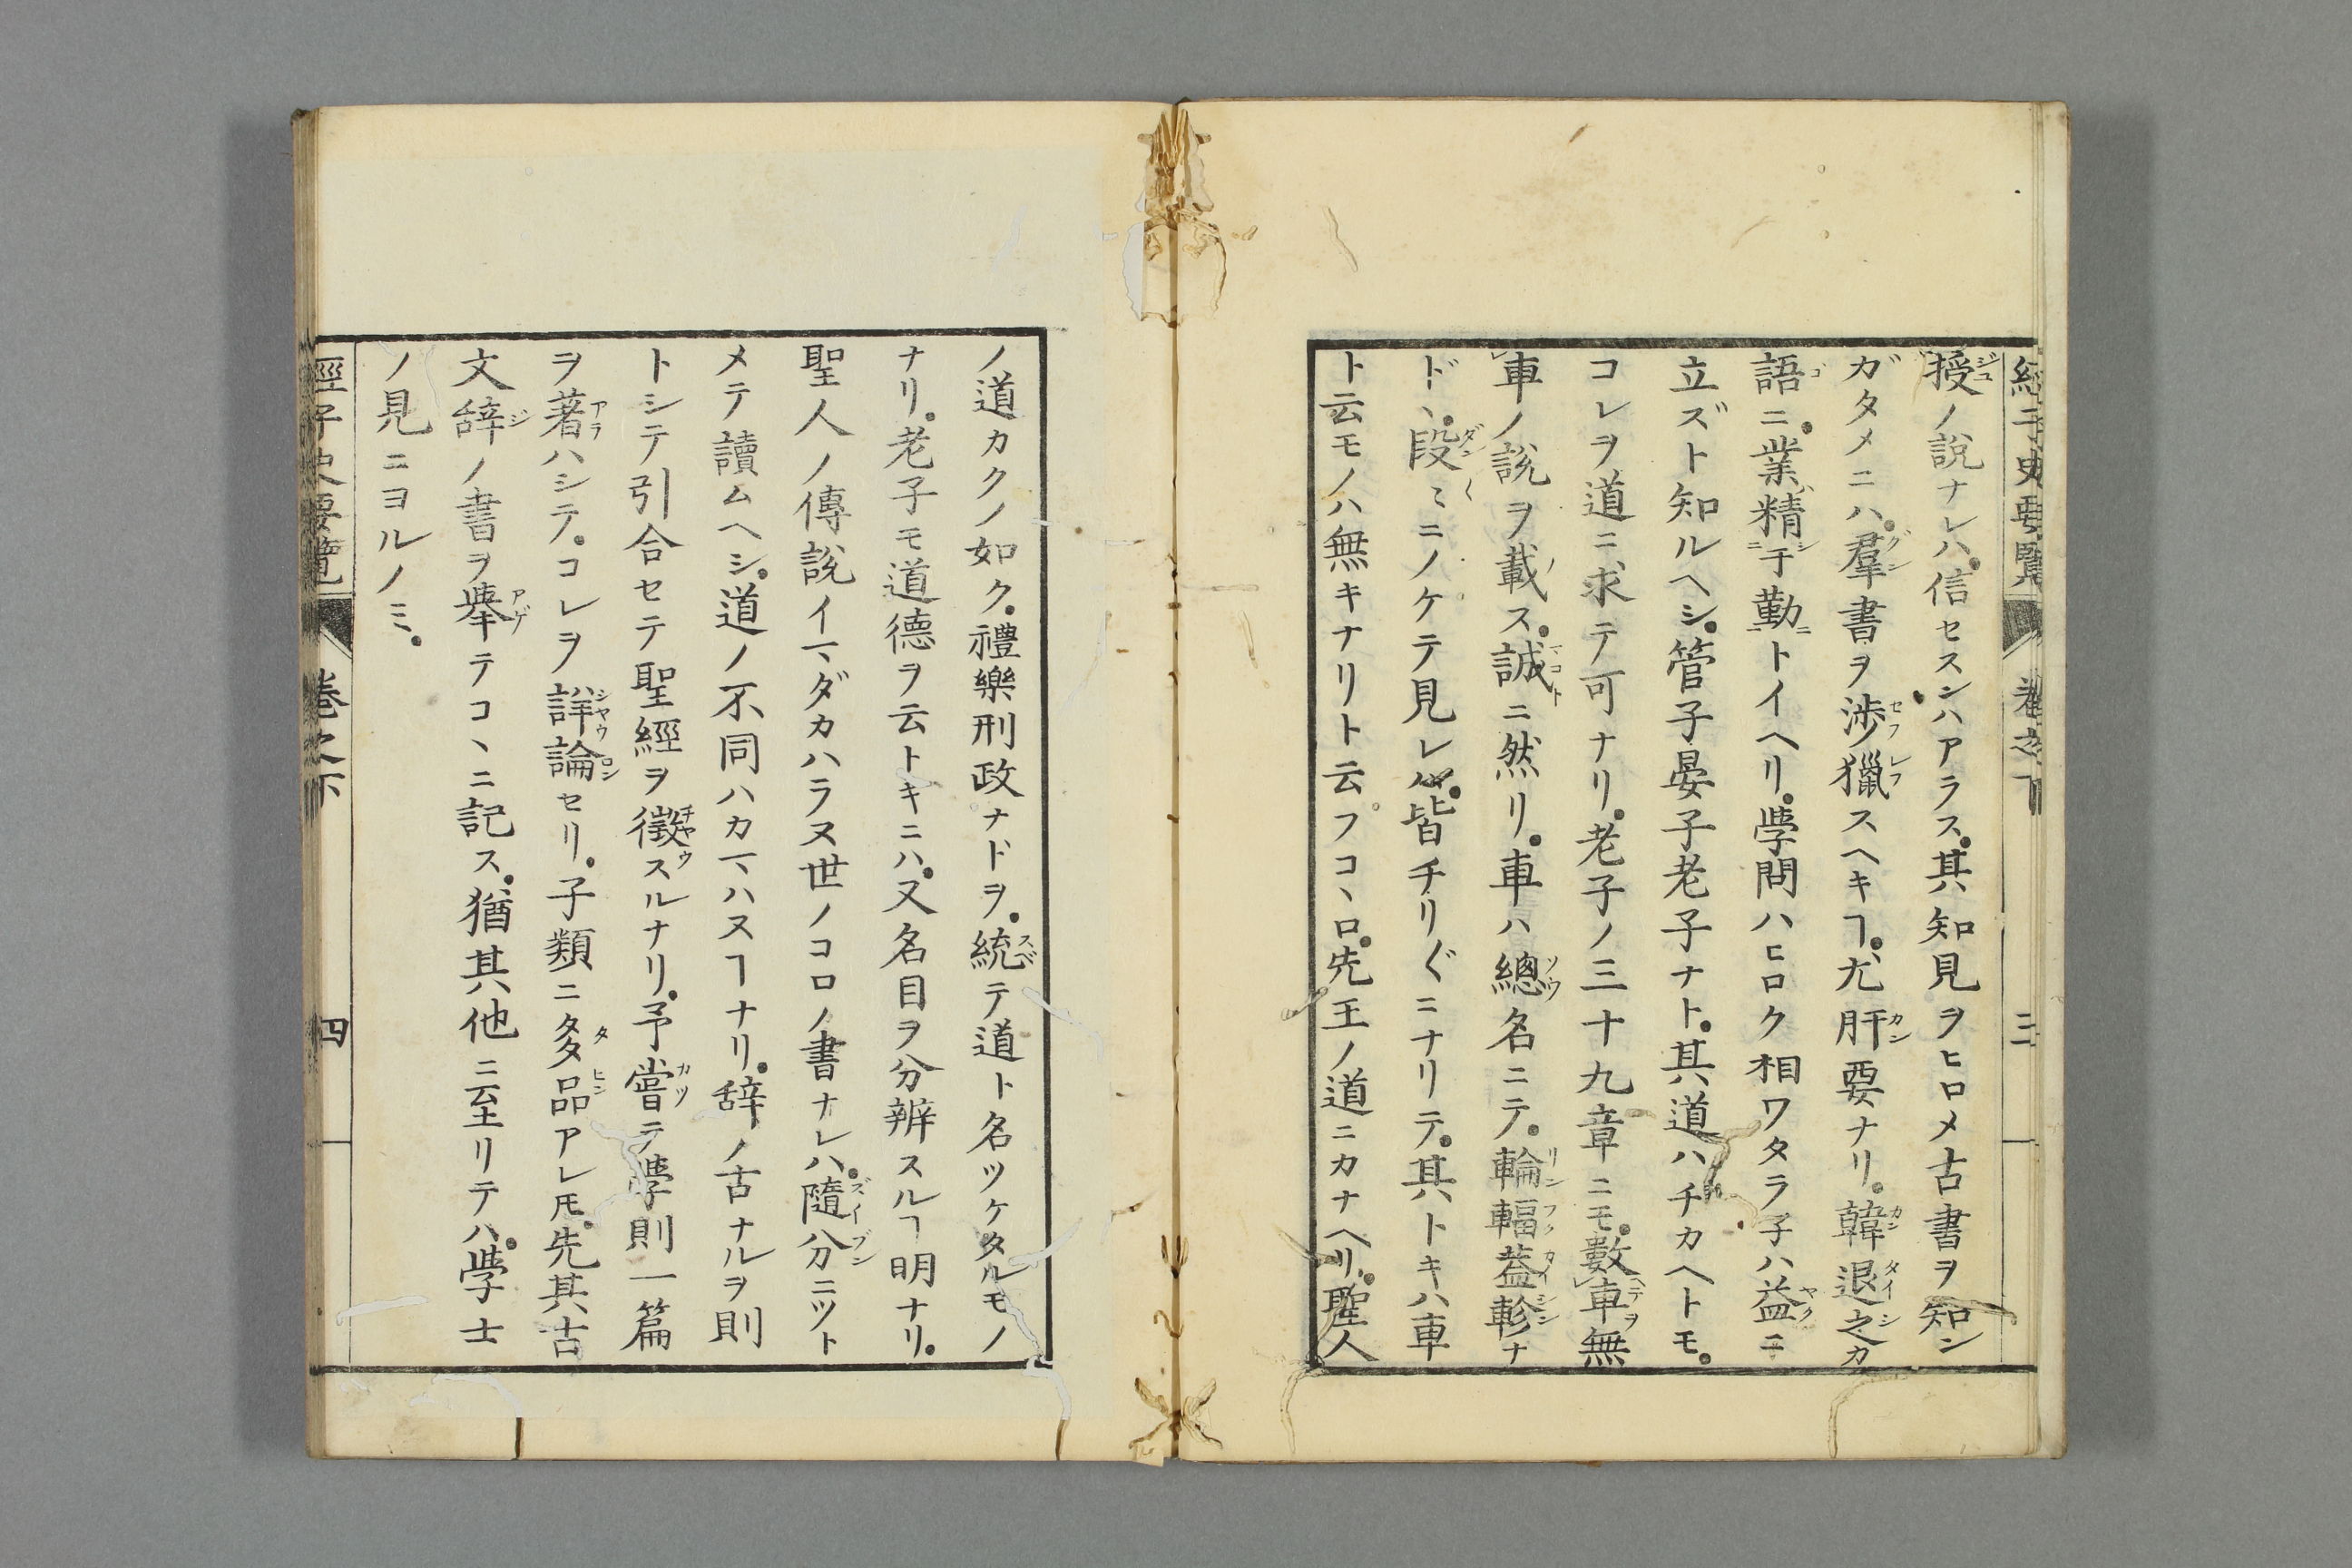 經子史要覽 卷之下 三
授ノ說ナレハ。信セスンハアラス。其知見ヲヒロメ古書ヲ知ン
ガタメニハ。羣書ヲ渉獵スヘキヿ。尤肝要ナリ。韓退之カ
語ニ。業精于勤トイヘリ。學問ハヒロク相ワタラ子ハ益ニ
立ズト知ルヘシ。管子晏子老子ナト。其道ハチカヘトモ。
コレヲ道ニ求テ可ナリ。老子ノ三十九章ニモ。數車無
車ノ說ヲ載ス。誠ニ然リ。車ハ總名ニテ。輪輻葢軫ナ
ド、。段〻ニノケテ見レハ。皆チリ〲ニナリテ。其トキハ車
ト云モノハ無キナリト云フコ、ロ。先王ノ道ニカナヘリ。聖人
ノ道カクノ如ク。禮樂刑政ナドヲ。統テ道ト名ツケタルモノ
ナリ。老子モ道德ヲ云トキニハ。又名目ヲ分辨スルヿ明ナリ。
聖人ノ傳說イマダカハラヌ世ノコロノ書ナレハ。隨分ニツト
メテ讀ムヘシ。道ノ不同ハカマハヌヿナリ。辞ノ古ナルヲ則
トシテ引合セテ聖經ヲ徵スルナリ。予嘗テ學則一篇
ヲ著ハシテ。コレヲ詳論セリ。子類ニ多品アレ𪜈。先其古
文辞ノ書ヲ擧テコ、ニ記ス。猶其他ニ至リテハ。學士
ノ見ニヨルノミ。
經子史要覽 卷之下 四